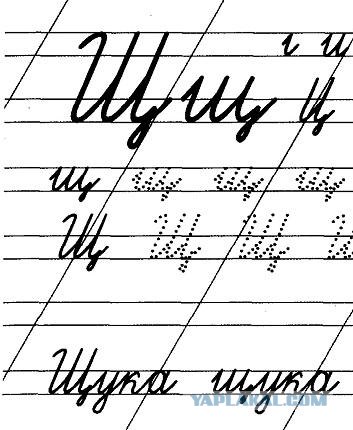 Щ щ г ш
Ц
щ щ щ щ
Щ Щ Щ Щ
Щука щука
YAPLAKAL.COM